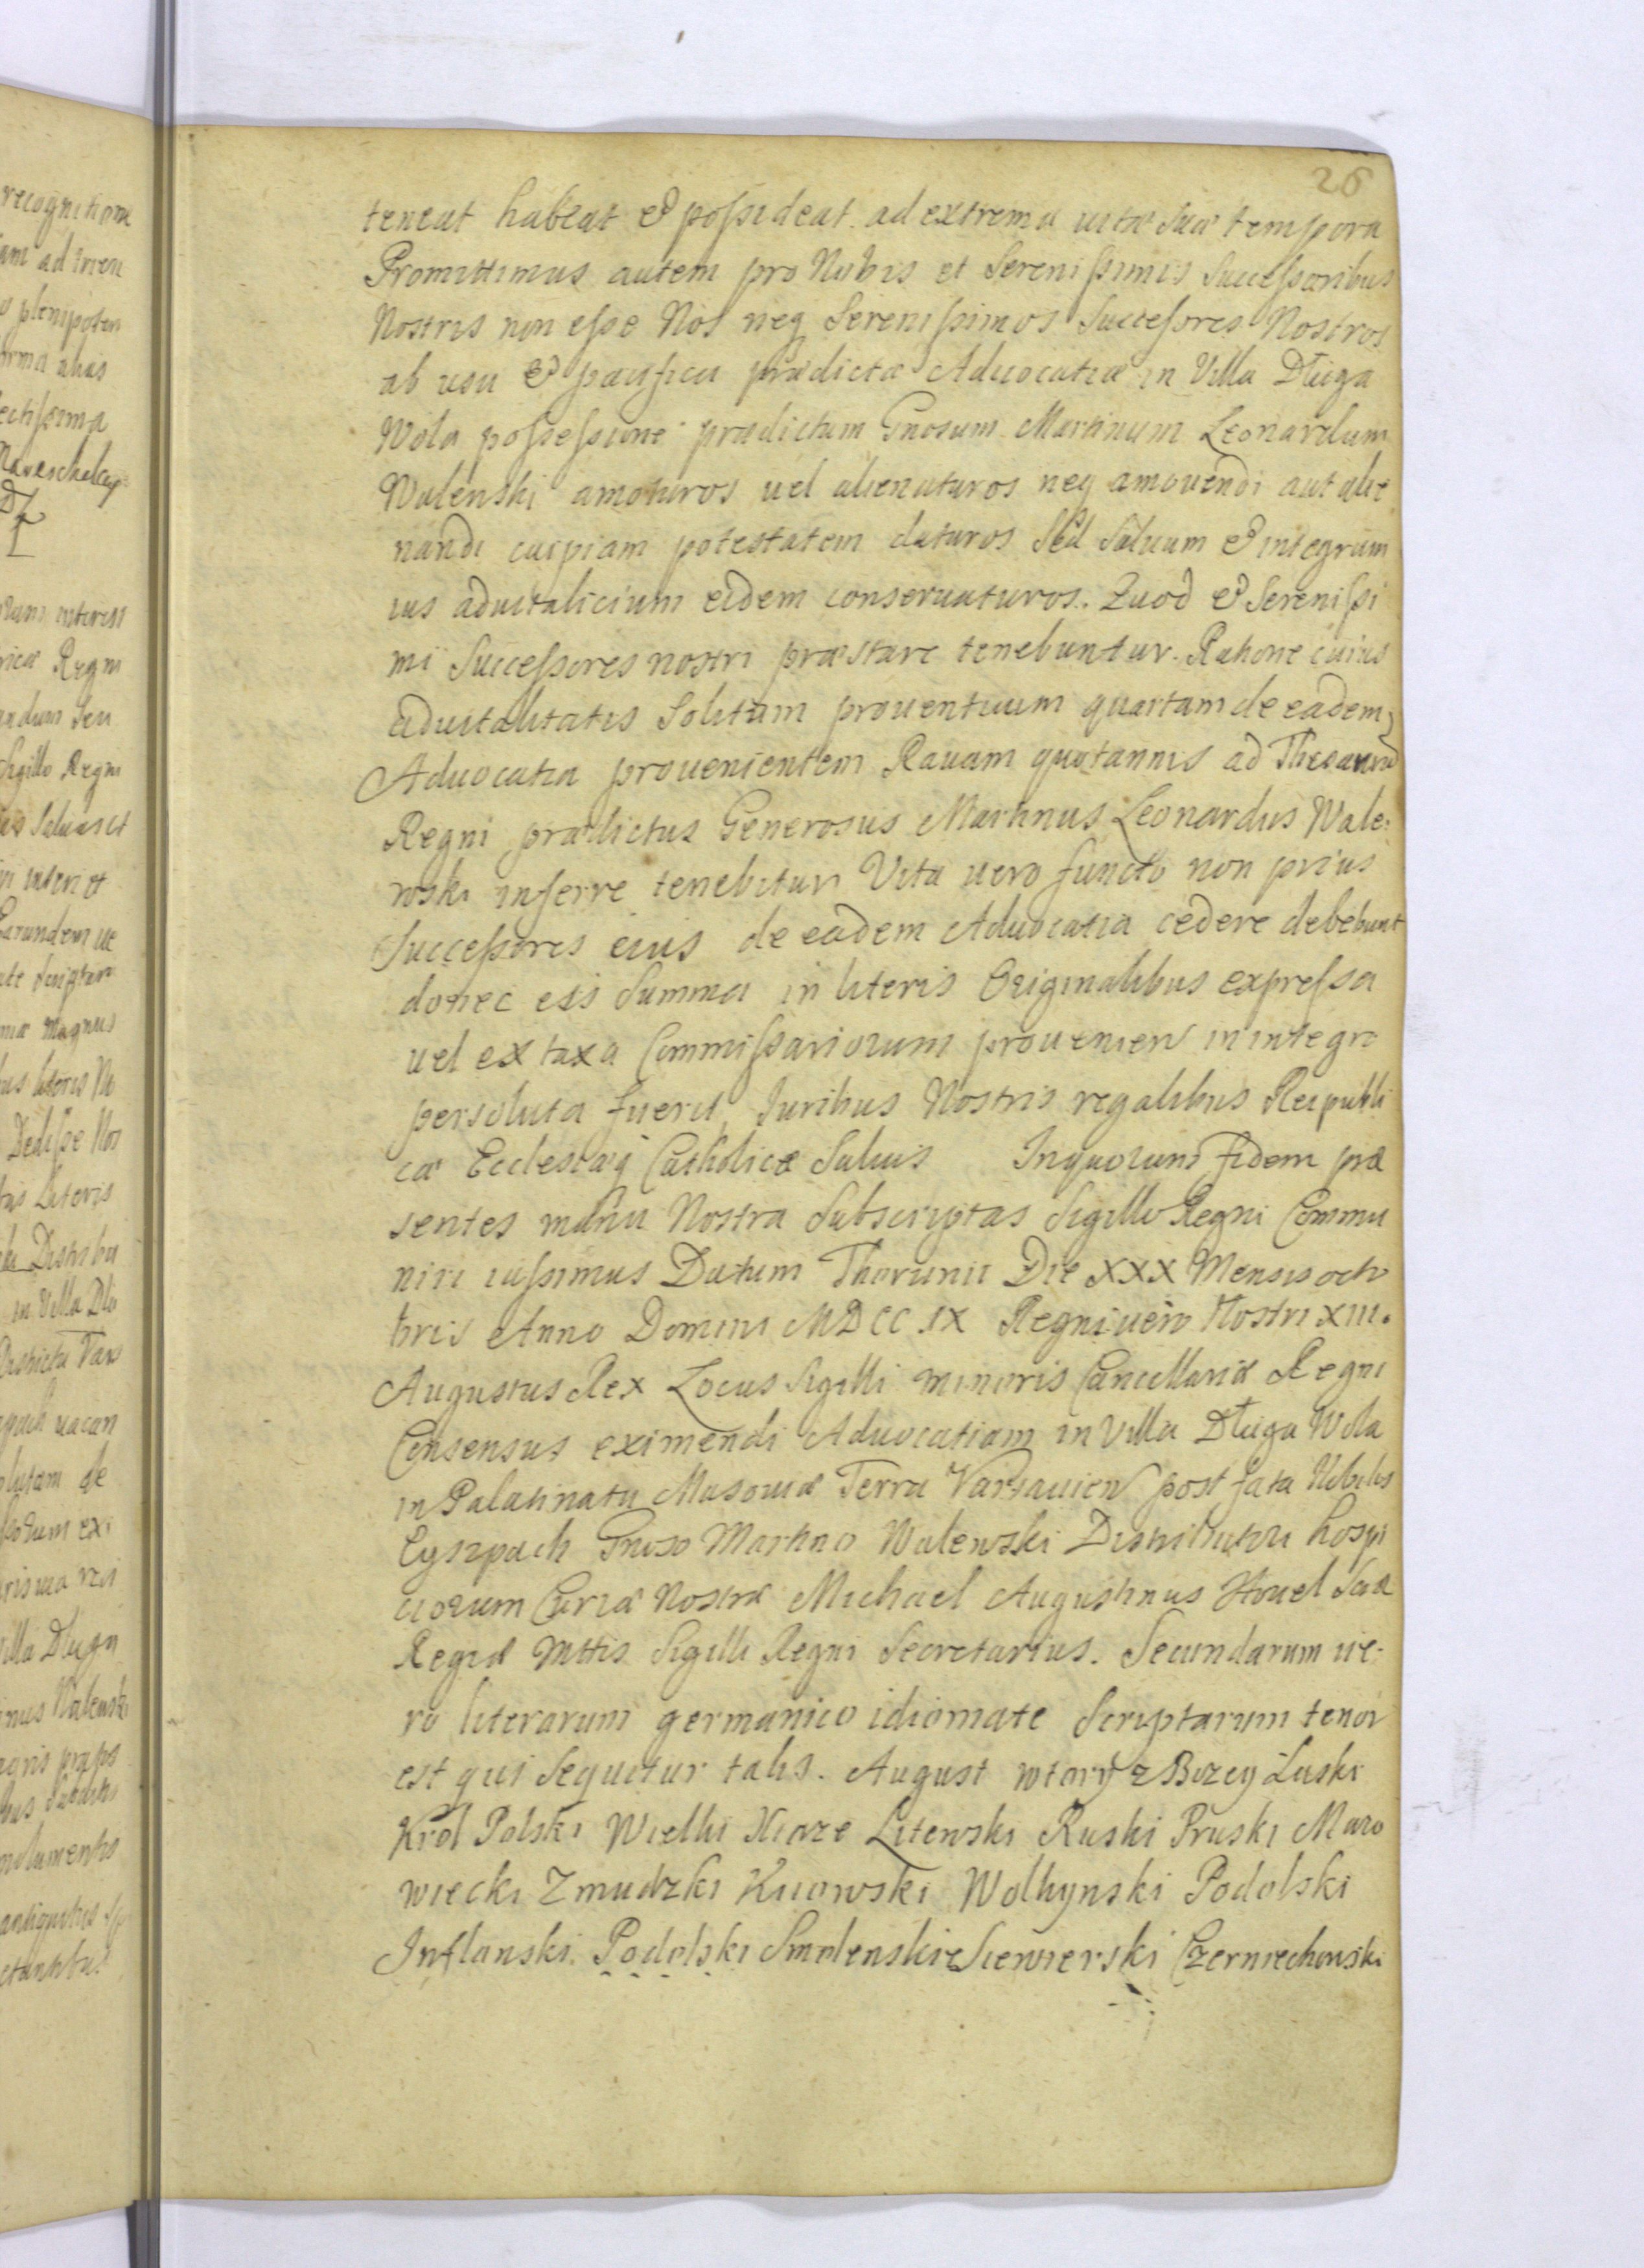 26
teneat habeat & possideat ad extrema uitæ suæ tempora
Promittimus autem pro Nobis et Serenissimis Successoribus
Nostris non esse Nos neq Serenissimos Successores Nostros
ab usu & pacifica prædictæ Aduocatiæ in Villa Długa
Wola possessione prædictum Gnosum Martinum Leonardum
Walenski amoturos uel alienaturos neq amouendi aut alie
nandi cuipiam potestatem daturos Sed Saluum & integrum
ius aduitalicium eidem conseruaturos. Quod & Serenissi
mi Successores nostri præstare tenebuntur. Ratione cuius
aduitalitatis Solitam prouentuum quartam de eadem
Aduocatia prouenientem Rauam quotannis ad Thesauru
Regni prædictus Generosus Martinus Leonardus Wale:
wski inferre tenebitur Vita uero functo non prius
Successores eius de eadem Aduocatia cedere debebunt
donec eis Summa in literis Originalibus expressa
uel ex taxa Commissariorum prouenien in integro
persoluta fuerit, Iuribus Nostris regalibus Reipubli
cæ Ecclesiæq Catholicæ Saluis Inquorum fidem præ
sentes manu Nostra Subscriptas Sigillo Regni Commu
niri iussimus Datum Thorunii Die XXX Mensis octo
bris Anno Domini MDCC.IX Regni uero Nostri XIII.
Augustus Rex Locus Sigilli minoris Cancellariæ Regni
Consensus eximendi Aduocatiam in Villa Długa Wola
in Palatinatu Masouiæ Terra Varsauien post fata Nobilis
Cyszpach Gnoso Martino Walewski Distributori hospi
ciorum Curiæ Nostræ Michael Augustinus Houel Sacræ
Regiæ Mttis Sigilli Regni Secretarius. Secundarum ue:
ro literarum germanico idiomate Scriptarum tenor
est qui Sequitur talis. August wtory z Bozey Łaski
Krol Polski Wielki Xiaze Litewski Ruski Pruski Mazo
wiecki Zmudzki Kiiowski Wolhynski Podolski
Inflanski Podolski Smolenski Siewierski Czerniechowski